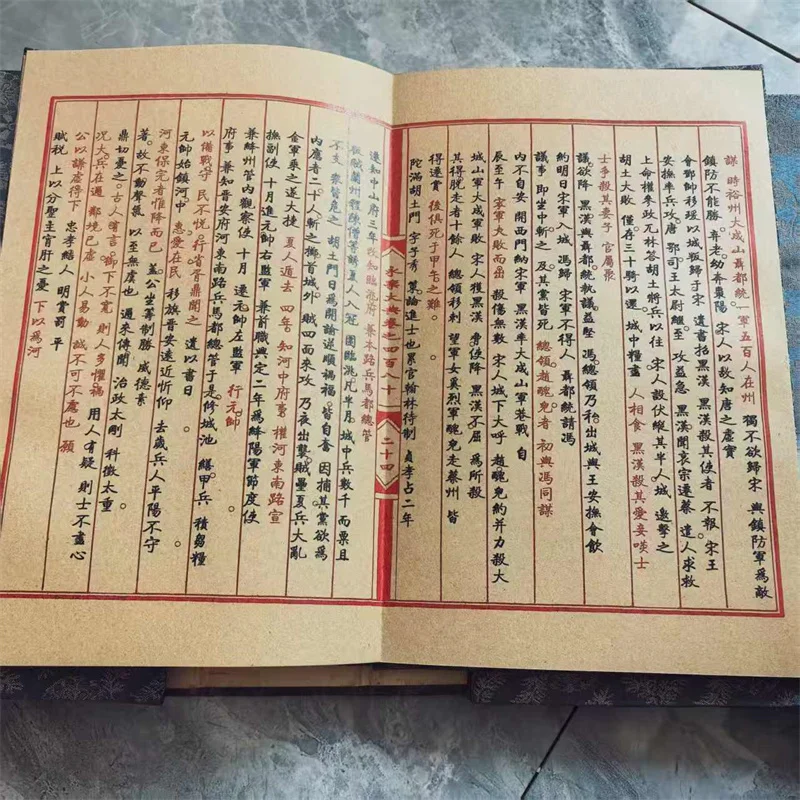 謀 時裕州大成山聶都統一軍五百人在州 獨不欲歸宋 與鎮防軍為敵
鎮防不能勝 弃老幼奔棗陽 宋人以故知唐之虛實
會鄧帥移瑗以城叛歸于宋 遺書招黑漢 黑漢殺其使者 不報 宋王
安撫率兵攻唐 鄂司王太尉繼至 攻益急 黑漢聞哀宗遷蔡 遣人求救
上命權參政兀林荅胡土將兵以往 宋人設伏縱其半入城 邀擊之
胡土大敗 僅存三十騎以還 城中糧盡 人相食 黑漢殺其愛妾啖士
士爭殺其妻子 官屬聚
議欲降 黑漢與聶都統執議益堅 馮總領乃私出城與王安撫會飲
約明日宋軍入城 馮歸 宋軍不得入 聶都統請馮
議事 即坐中斬之 及其黨皆死 總領趙醜兒者 初與馮同謀
內不自安 開西門納宋軍 黑漢率大成山軍巷戰 自
辰至午 宋軍失敗而出 殺傷無數 宋人城下大呼 趙醜兒約并力殺大
城山軍大成軍敗 宋人獲黑漢 身使降 黑漢不屈 為所殺
其得脫走者十餘人 總領移剌 望軍女奚烈軍醜兒走蔡州 皆
得遷賞 後俱死于甲午之難
陀滿胡土門 字子秀 策論進士也 累官翰林待制 貞孝占二年
永樂大典卷之四百八十 二十四
遷知中山府 三年改知臨洮府 兼本路兵馬都總管
叛賊蘭州程陳僧等誘夏人入冦 圍臨洮凡半月 城中兵數千 而粟且
不支 衆皆危之 胡土門日為開諭逆順禍福 皆自奮 因捕其黨欲為
內應者二十人斬之 擲首城外 賊四面來攻 乃夜出襲賊壘 夏兵大亂
金軍乘之 遂大捷 夏人遁去 四年 知河中府事 權河東南路宣
撫副使 十月 進元帥右監軍 兼前職 興定二年為絳陽軍節度使
兼絳州管內觀察使 十月 遷元帥左監軍 行元帥
府事 兼知晉安府 河東南路兵馬都總管 于是修城池 繕甲兵 積芻糧
以備戰守 民不悅 行省胥鼎聞之 遺以書曰
元帥始鎮河中 惠愛在民 移旗晉安 遠近忻仰 去歲兵人平陽不守
河東保完者惟降而已 蓋公坐籌制勝 威德素
著 故不動聲氣 以至無虞也 邇來傳聞 治政太剛 科徵太重
鼎切憂之 古人有言 御下不寬 則人多懼禍 用人有疑 則士不盡心
況大兵在邇 鄰境已虛 小人易動 誠不可不慮也 願
公以謙虛得下 忠孝結人 明賞罰 平
賦稅 上以分聖主宵旰之憂 下以為河